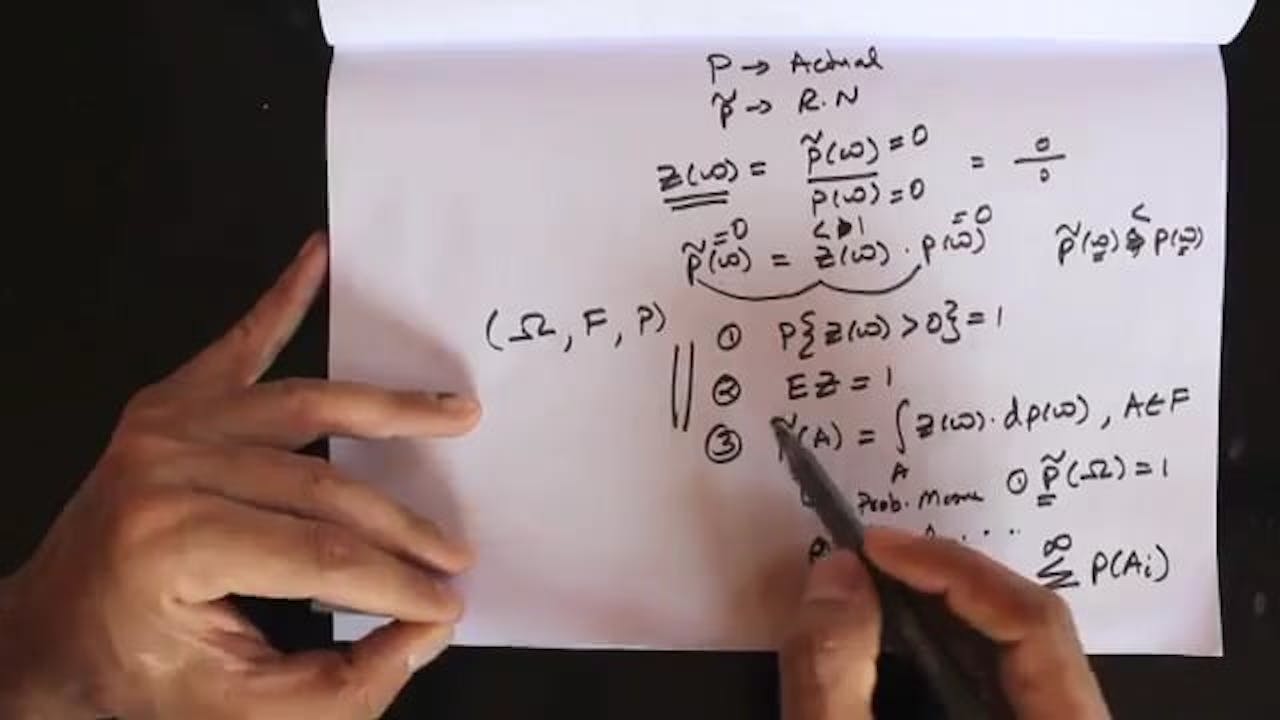 P → Actual
P̃ → R.N
Z(ω) = P̃(ω) = 0 / P(ω) = 0 = 0/0
P̃(ω) = Z(ω) · P(ω)
=0 < 1 =0
P̃(ω) < P(ω)
(Ω, F, P)
① P{Z(ω) > 0} = 1
② EZ = 1
③ P̃(A) = ∫_A Z(ω) · dP(ω), A ∈ F
Prob. ① P̃(Ω) = 1
∞
Σ P(Ai)